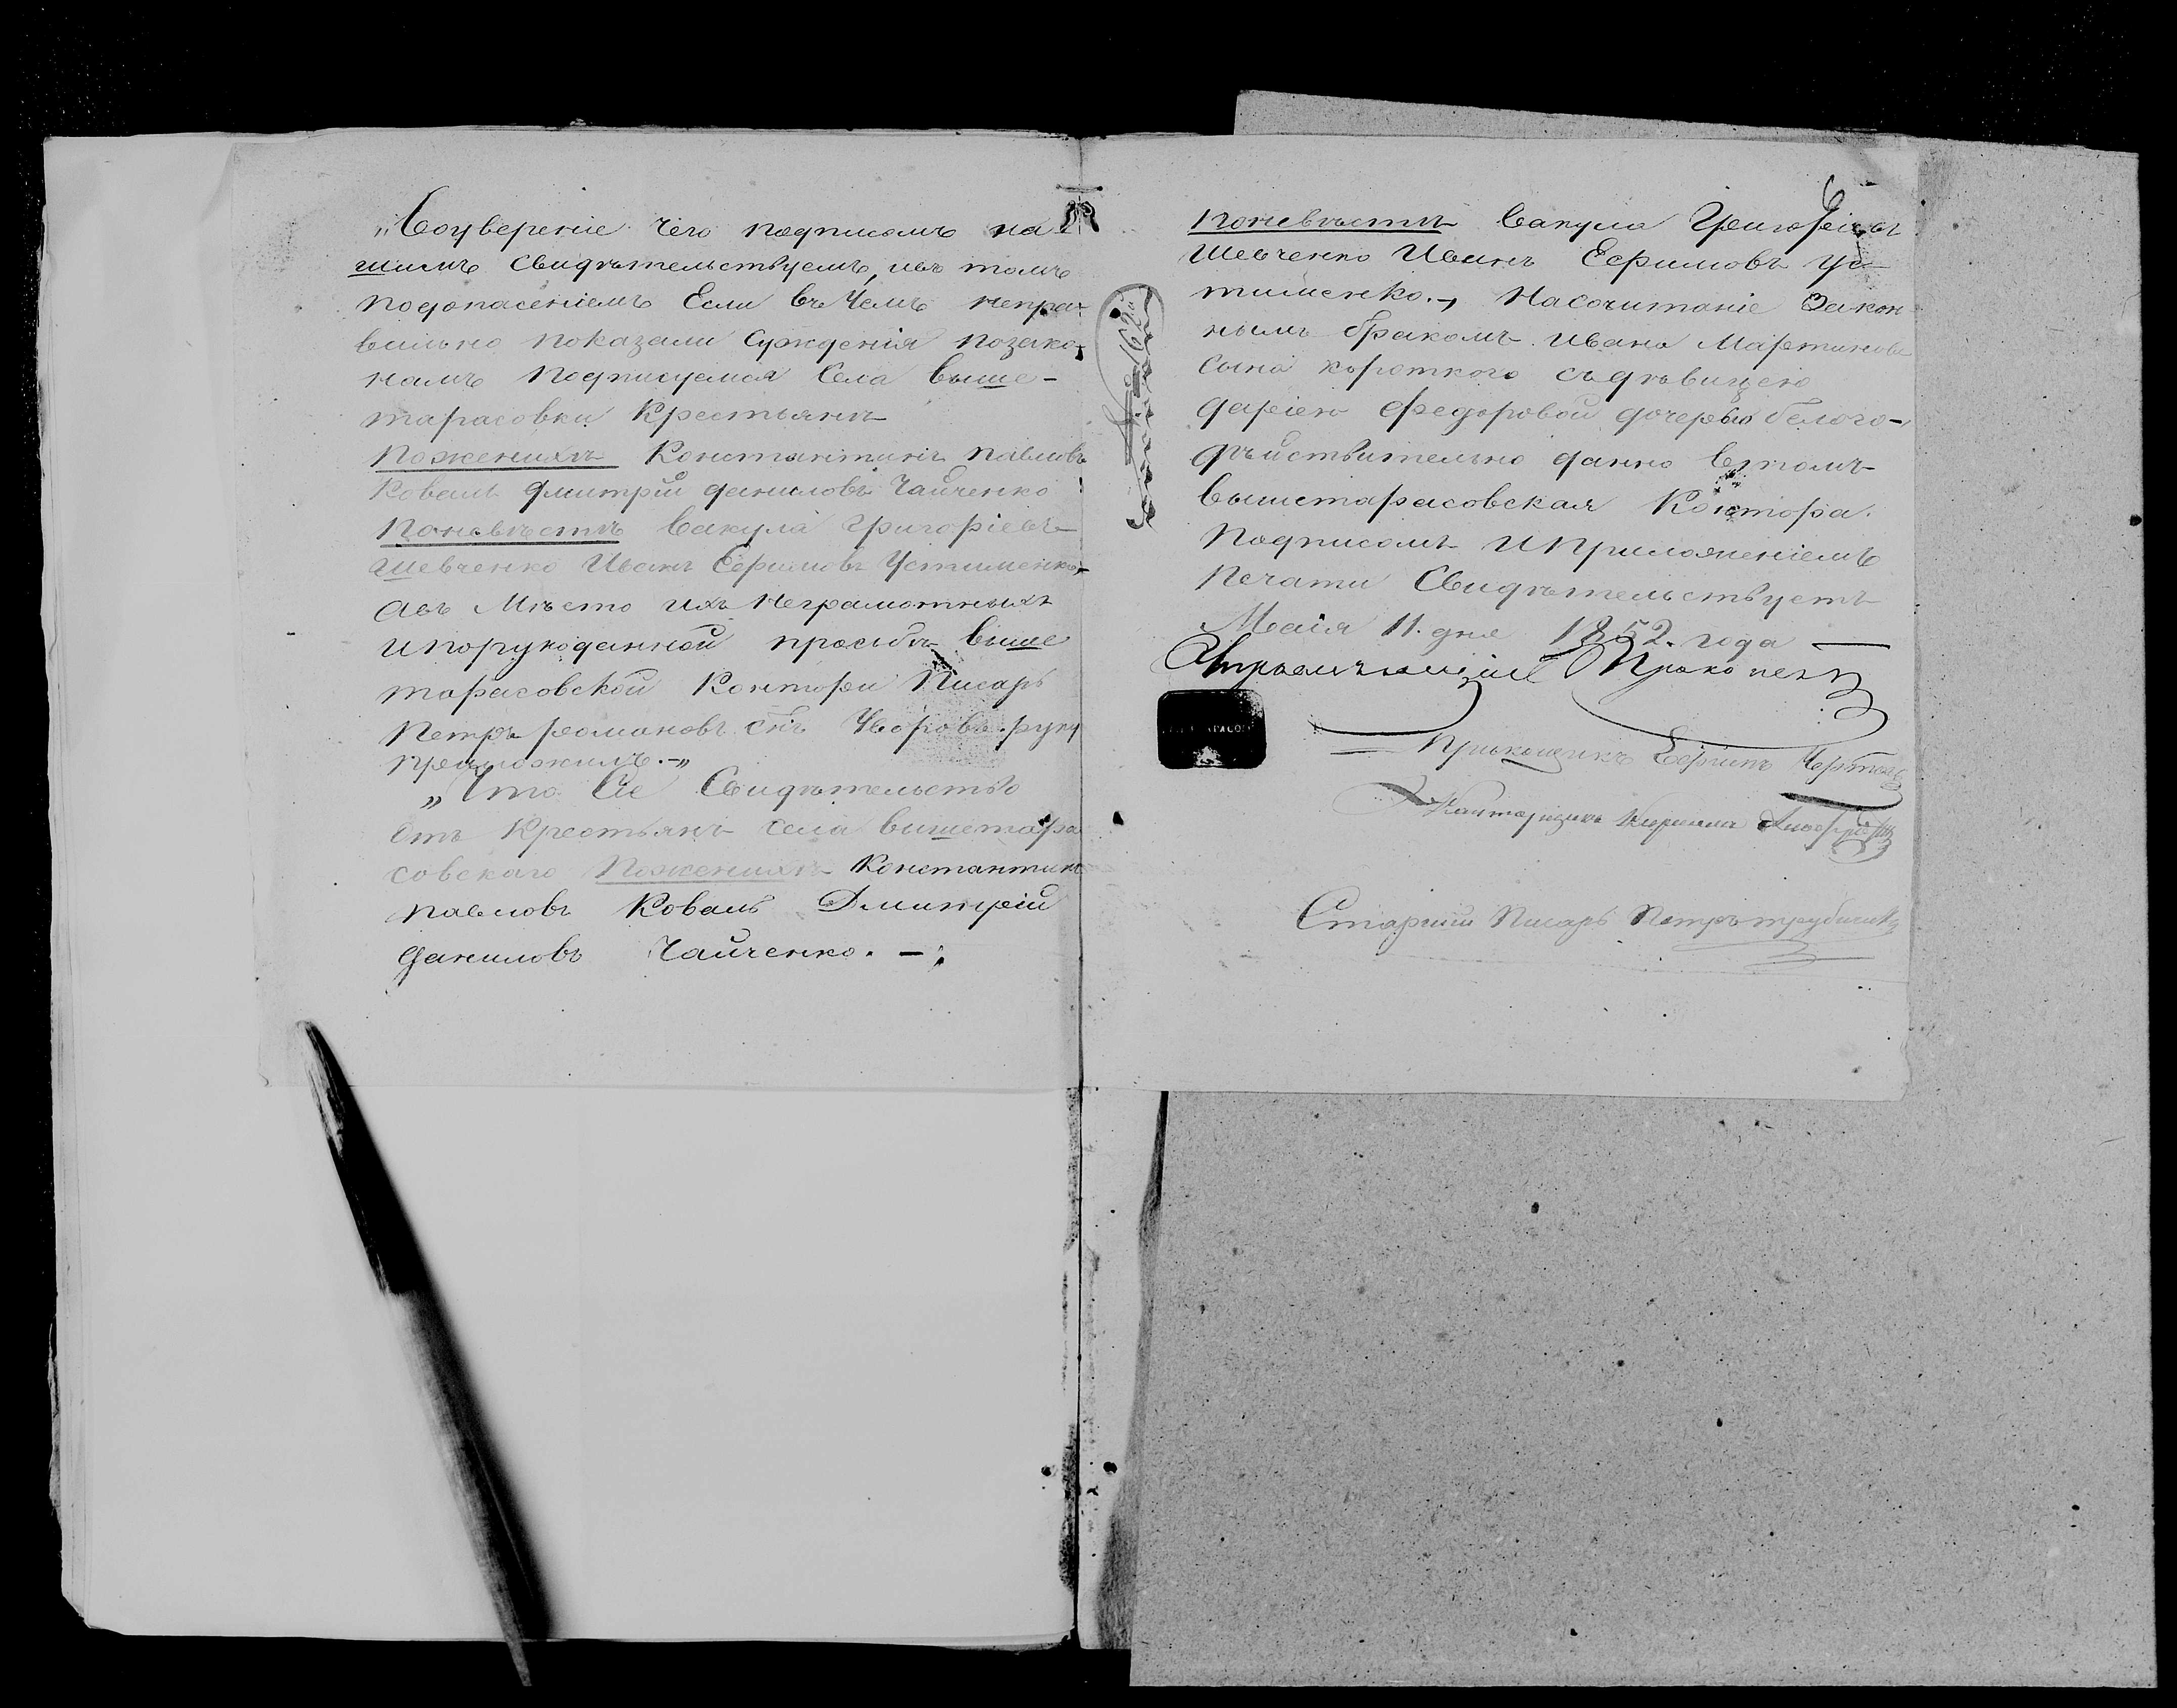 „Воуверение чего подписомъ на-
шимъ свидѣтельствуемъ, ивъ томъ
подопасениемъ Если въ чемъ непра-
вильно показали суждения позако-
намъ подписуемся Села выше-
тарасовки Крестьяне
Поженихѣ Константинъ Павловъ
Коваль дмитрій даниловъ Чайченко
Поневѣстѣ Вакула Григоріевъ
Шевченко Иванъ Ефимовъ Устименко,
авъ Мѣсто ихъ неграмотныхъ
ипорукоданной прозьбѣ выше
тарасовской Конторы Писарь
Петръ романовъ снъ руку
приложилъ.-„
„Что Сіе Свидѣтельство
Отъ Крестьянъ села вышетара
совскаго Поженихѣ Константинъ
павловъ Коваль Дмитрій
даниловъ Чайченко. -;
6
Поневѣстѣ Вакула Григоріевъ
Шевченко Иванъ Ефимовъ Ус-
тименко., Насочитаніе Закон
нымъ бракомъ ивана Мартинова
сына короткого съдѣвицею
даріею Федоровой дочерью белого-
дѣйствительно данно вътомъ
вышетарасовская Контора.
Подписомъ иприложеніемъ
печати Свидѣтельствуетъ
Маія 11. дня 1852. года —
Прикащикъ Ефимъ
Конторщикъ Кирилла
Старший Писарь Петръ